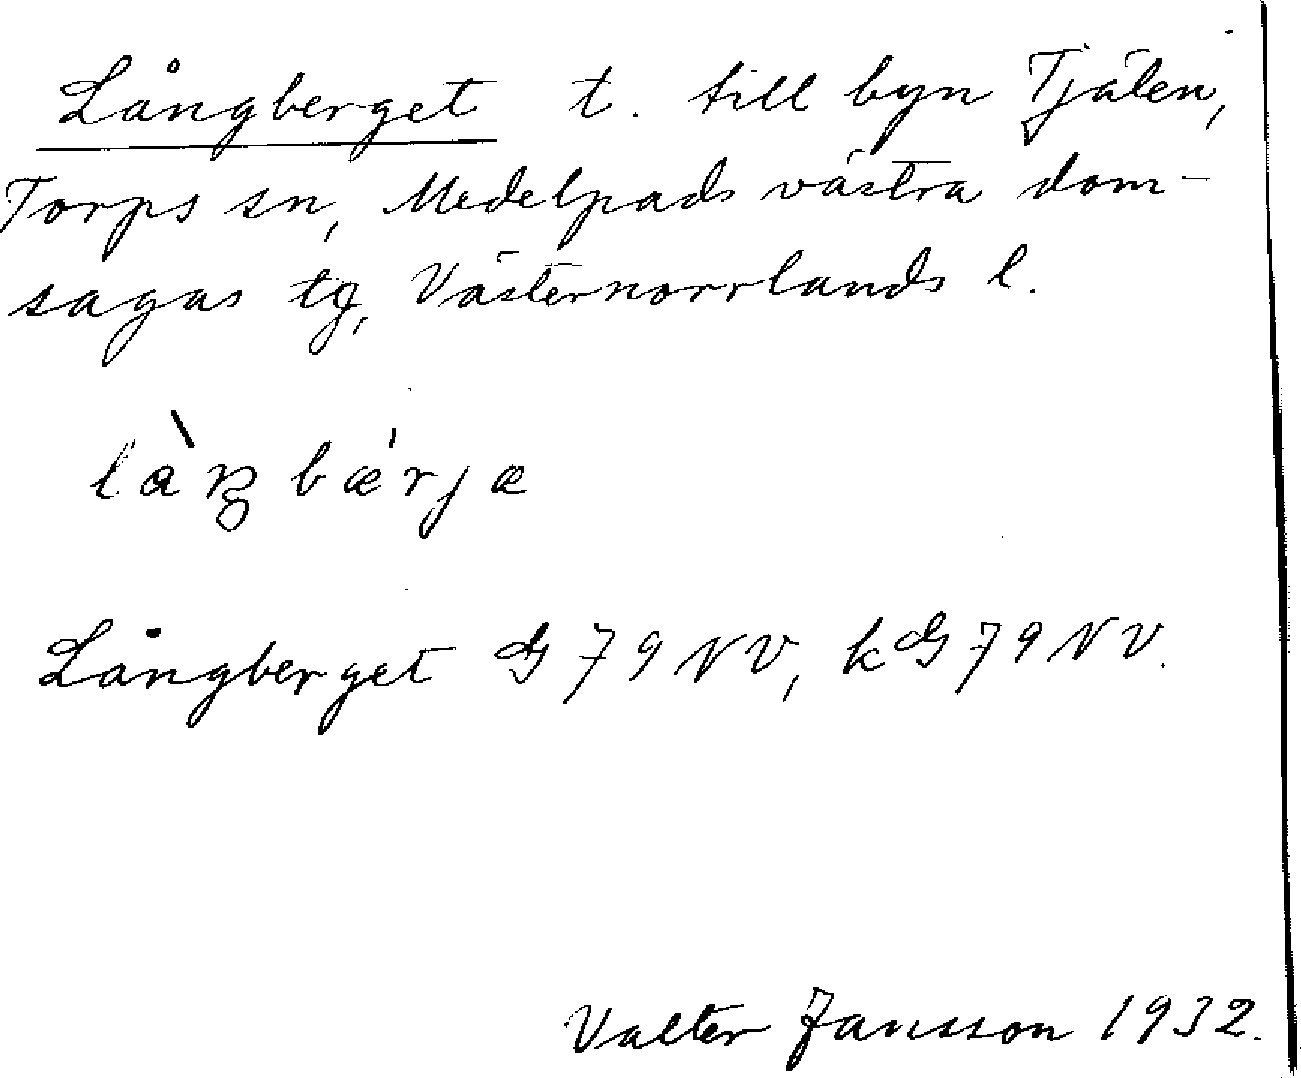 Långberget t. till byn Tjälen,
Torps sn, Medelpads västra dom-
sagas tg, Västernorrlands l.
làŋbǽrjæ
Långberget G 79 NV, kG 79 NV.
Valter Jansson 1932.